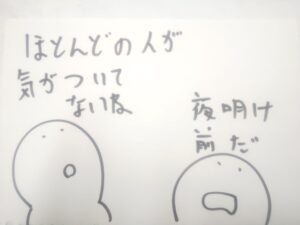 ほとんどの人が
気がついて
ないね
夜明け
前だ